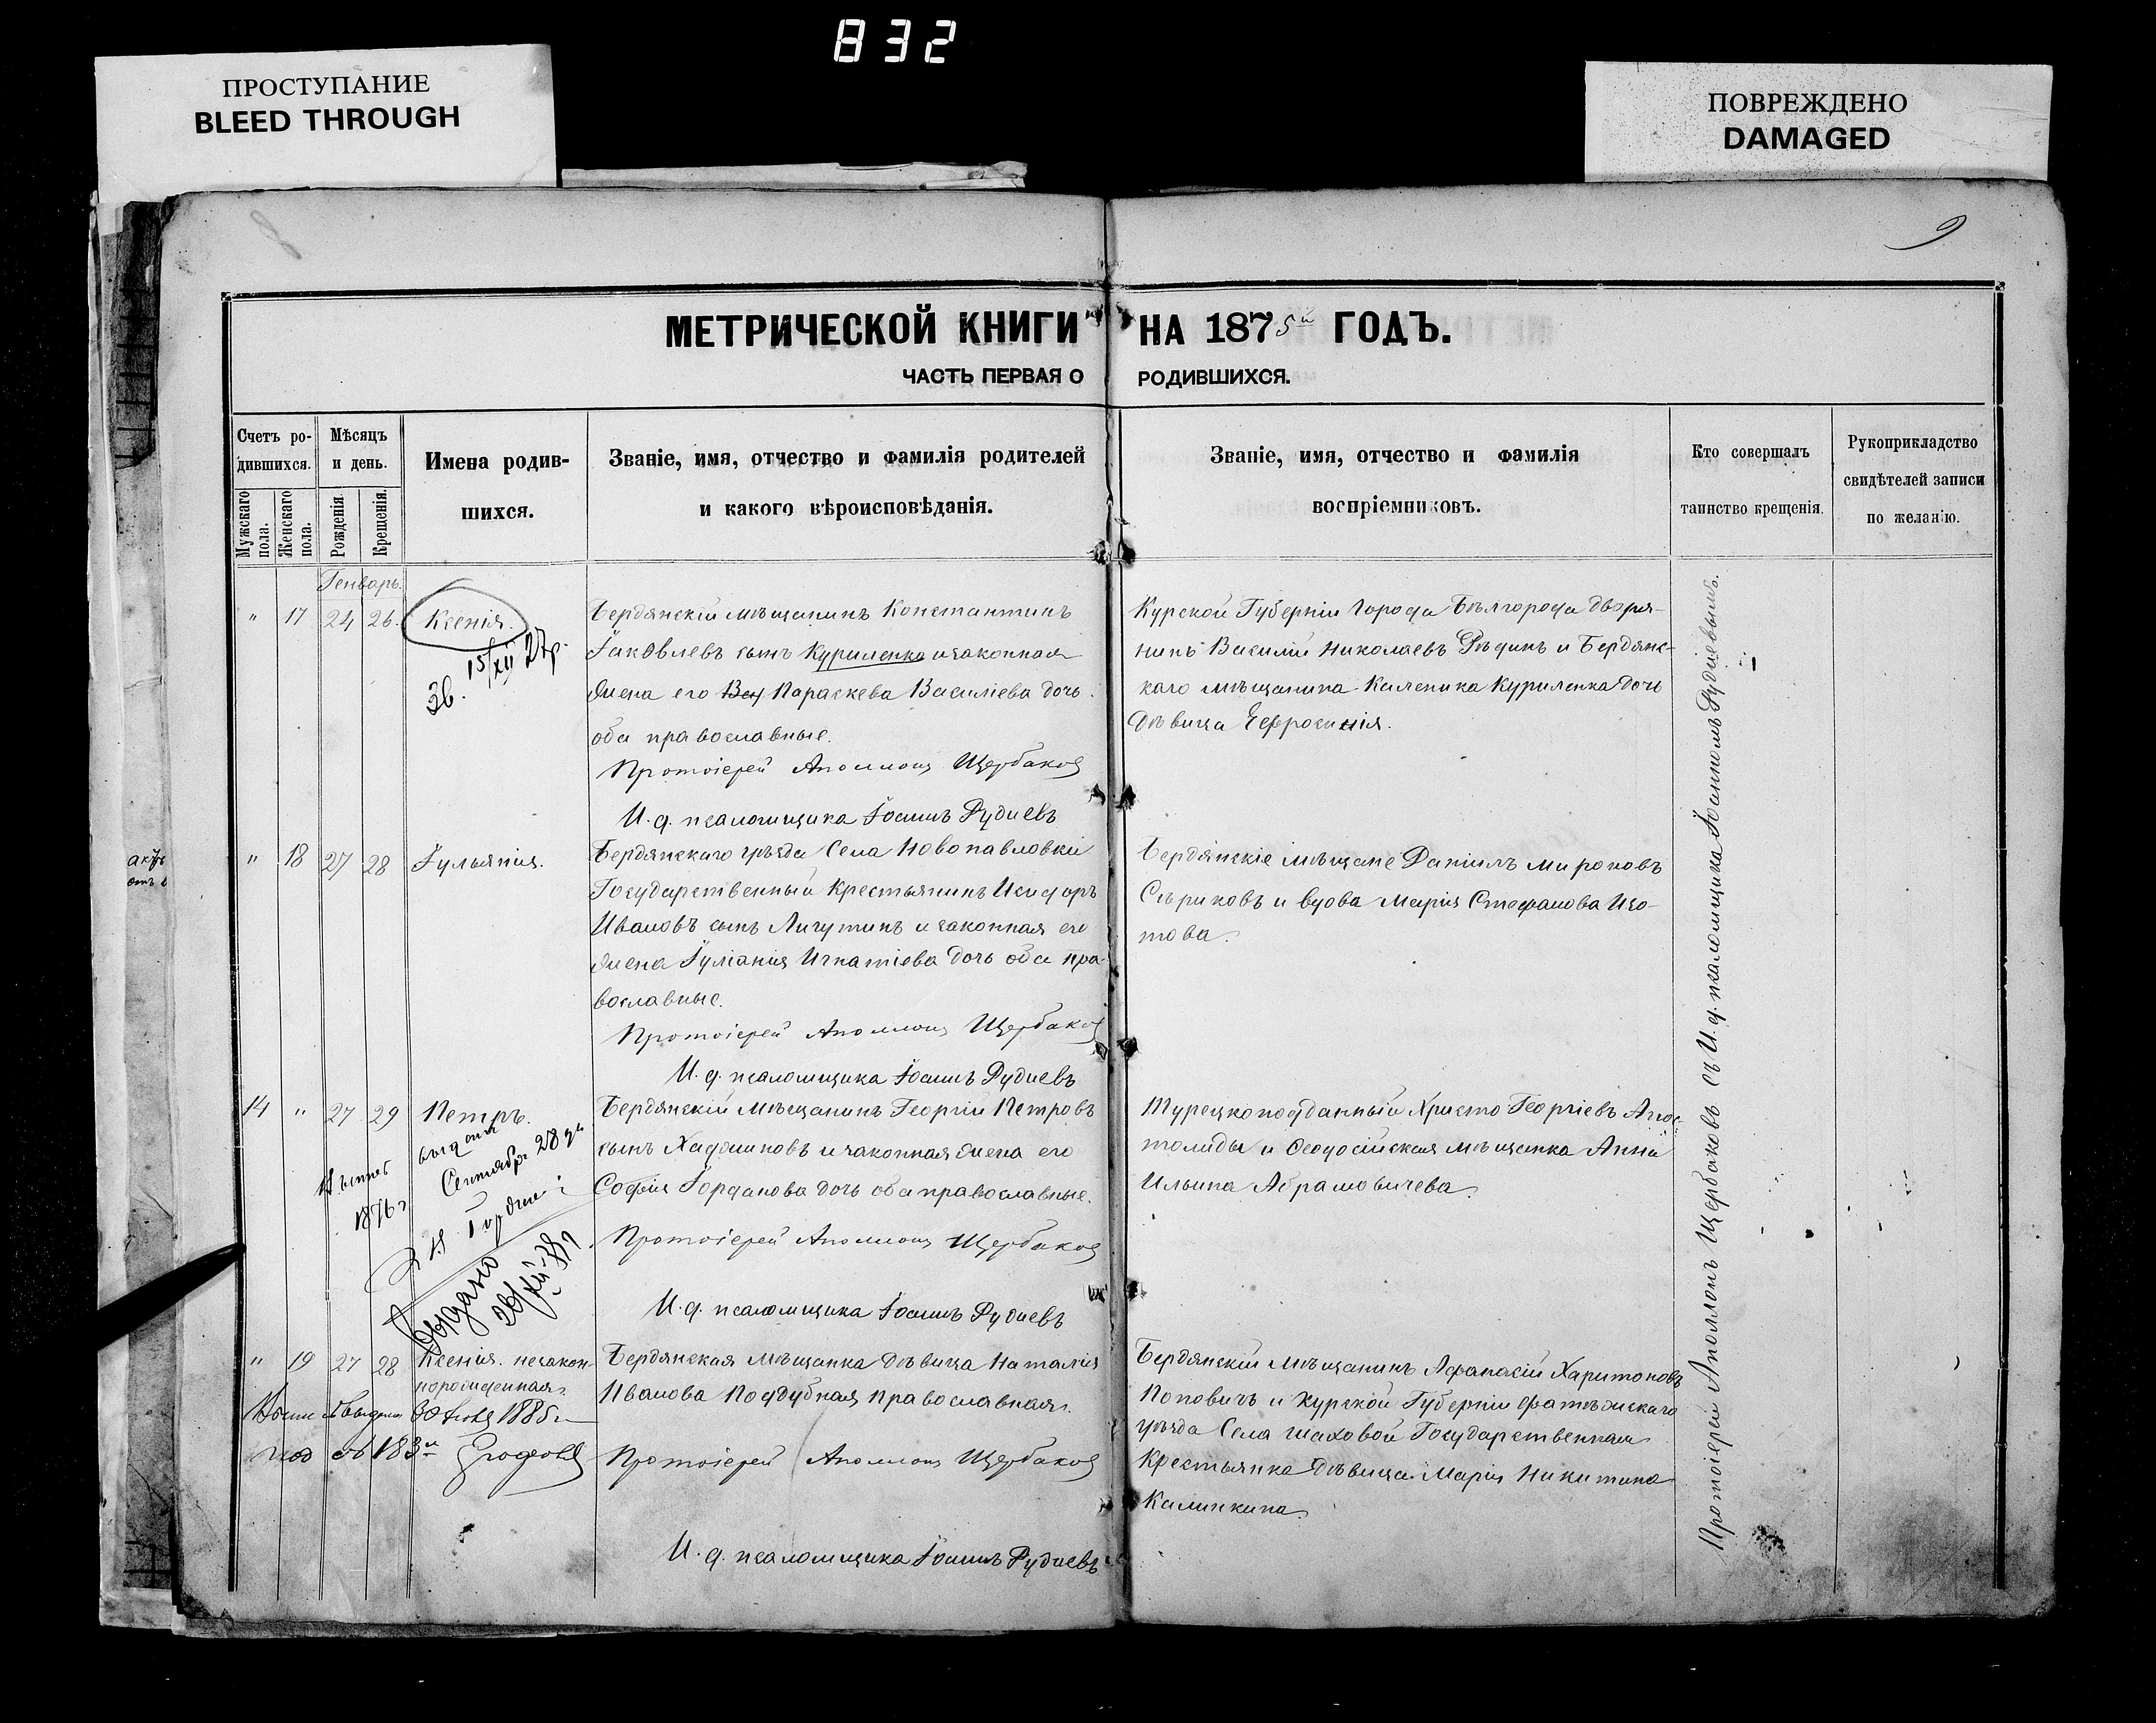 832
ПРОСТУПАНИЕ
BLEED THROUGH
ПОВРЕЖДЕНО
DAMAGED
9
МЕТРИЧЕСКОЙ КНИГИ НА 1875й ГОДЪ.
ЧАСТЬ ПЕРВАЯ О РОДИВШИХСЯ.
Счетъ ро-
дившихся.
Мужскаго пола.
Женскаго пола.
Мѣсяцъ
и день.
Рожденія
Крещенія.
Имена родив-
шихся.
Званіе, имя, отчество и фамилія родителей
и какого вѣроисповѣданія.
Званіе, имя, отчество и фамилія
воспріемниковъ.
Кто совершалъ
таинство крещенія.
Рукоприкладство
свидѣтелей записи
по желанію.
Генварь.
" 17 24 26. Ксенія.
15/XII 27р.
Зв.
Бердянскій мѣщанинъ Константинъ
Іаковлевъ сынъ Куриленко и законная
жена его Вас Параскева Василіева дочь
оба православные.
Протоіерей Аполлонъ Щербаковъ
И. д. псаломщика Іоаннъ Рудиевъ
Курской Губерніи Города Бѣлгорода дворя-
нинъ Василій Николаевъ Рѣдинъ и Бердянс-
каго мѣщанина Каленика Куриленка дочь
дѣвица Еффросинія.
" 18 27 28 Іульянія.
Бердянскаго уѣзда Села Новопавловки
Государственный Крестьянинъ Исидоръ
Ивановъ сынъ Лигутинъ и законная его
жена Іуліанія Игнатіева дочь оба пра-
вославные.
Протоіерей Аполлонъ Щербаковъ
И. д. псаломщика Іоаннъ Рудиевъ
Бердянскіе мѣщане Даніилъ Мироновъ
Сѣриковъ и вдова Марія Стефанова Изо-
това.
14 " 27 29 Петръ.
выдана
Сентября 28 дн
1876 г
Выдано
28/XII
Бердянскій мѣщанинъ Георгій Петровъ
сынъ Хаджиновъ и законная жена его
Софія Іорданова дочь оба православные.
Протоіерей Аполлонъ Щербаковъ
И. д. псаломщика Іоаннъ Рудиевъ
Турецкоподданный Христо Георгіевъ Апос-
толиды и Феодосійская мѣщанка Анна
Ильина Абрамовичева.
" 19 27 28 Ксенія. незакон-
норожденная.
выдана 30 1885 г
под № 183й
Бердянская мѣщанка дѣвица Наталія
Иванова Поддубная православная.
Протоіерей Аполлонъ Щербаковъ
И. д. псаломщика Іоаннъ Рудиевъ
Бердянскій мѣщанинъ Афанасій Харитоновъ
Поповичъ и Курской Губерніи Фатежскаго
уѣзда Села Шаховой Государственная
Крестьянка дѣвица Марія Никитина
Калинкина.
Протоіерей Аполлонъ Щербаковъ съ И. д. псаломщика Іоанномъ Рудиевымъ.